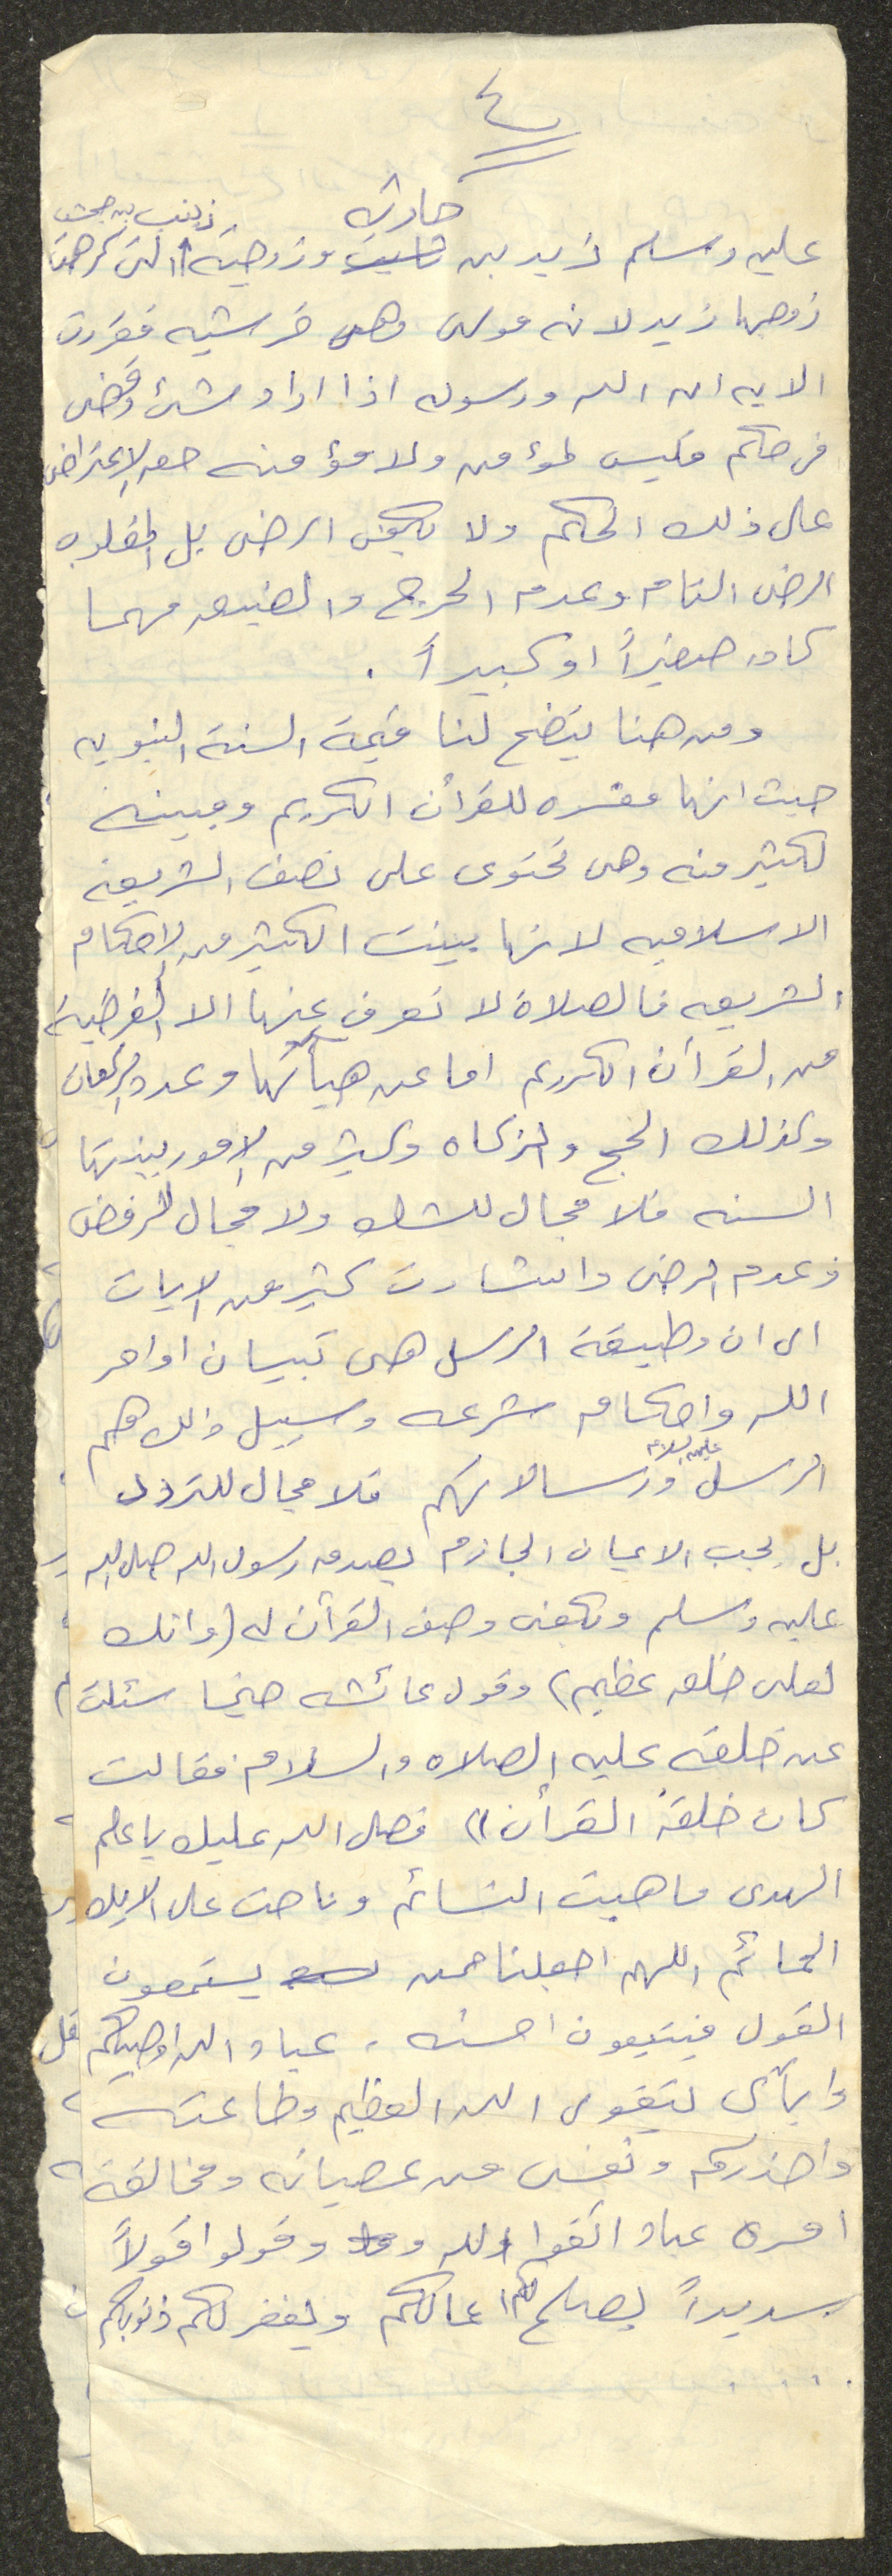 ٤
حارثه
زينب بن جحش
عليه وسلم زيد بن ثابت وزوجته التى كرهت
زوجها زيد لانه مولى وهى قرشيه فقررت
الايه ان الله ورسوله اذا اراد شئ وقضى
فى حكم فليس لمؤمن ولا مؤمنه حق الاعتراض
على ذلك الحكم ولا يكفى الرضى بل المطلوب
الرضى التام وعدم الحرج والضيق مهما
كان صغيراً او كبيراً .
ومن هنا يتضح لنا قيمة السنة النبويه
حيث انها مفسره للقرأن الكريم ومبينه
لكثير منه وهى تحتوى على نصف الشريعه
الاسلاميه لانها بينت الكثير من الاحكام
الشريعه فالصلاة لا نعرف عنها الا الفرضية
من القرأن الكريم اما عن هيأتها وعدد الركعات
وكذلك الحج والزكاه وكثير من الامور بينتها
السنه فلا مجال للشك ولا مجال للرفض
وعدم الرضى واشارت كثير من الايات
الى ان وظيفة الرسل هى تبيان اوامر
الله واحكام شرعه وسبيل ذالك هم
الرسل عليهم السلام ورسالاتهم فلا مجال للتردد
بل يجب الايمان الجازم بصدق رسول الله صلى الله
عليه وسلم ويكفى وصف القرأن له (وانك
لعلى خلق عظيم) وقول عائشه حينما سئلت
عن خلقه عليه الصلاه والسلام فقالت
كان خلقه القرأن )) فصلى الله عليك يا علم
الهدى ما هبت النسائم وناحت على الايك
الحمائم اللهم اجعلنا ممن يستمعون
القول فيتبعون احسنه . عباد الله اوصيكم
واياى بتقوى الله العظيم وطاعته
واحذركم ونفسى من عصيانه ومخالفة
امره عباد اتقوا الله وقولوا قولاً
سديداً يصلح لكم اعمالكم ويغفر لكم ذنوبكم
. . . .